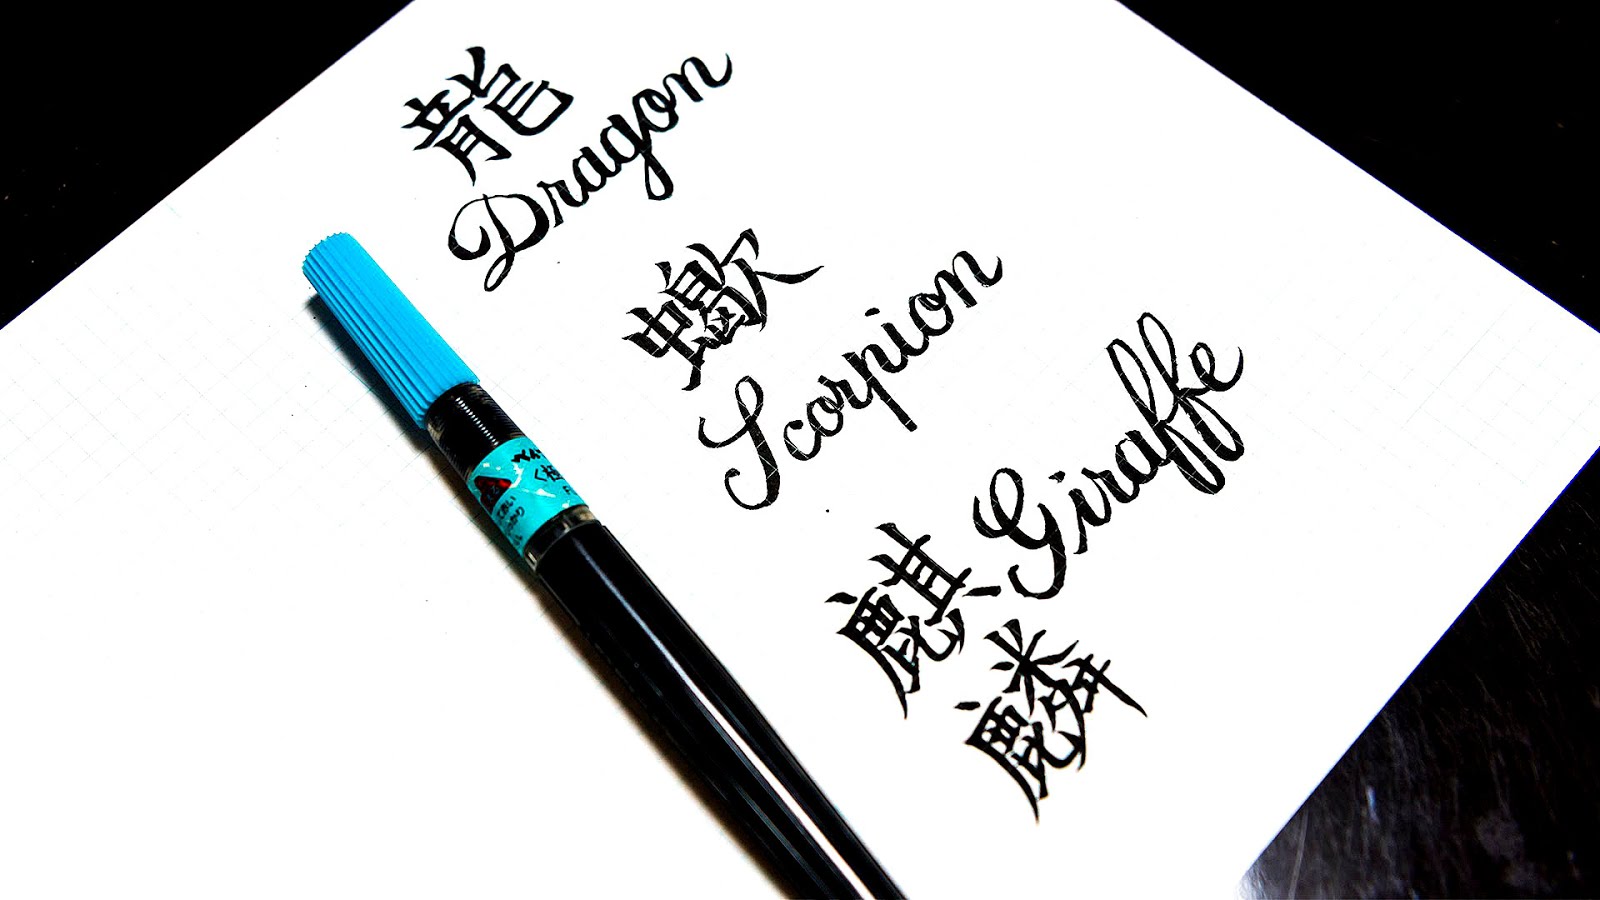 龍
Dragon
蠍
Scorpion
Giraffe
麒
麟